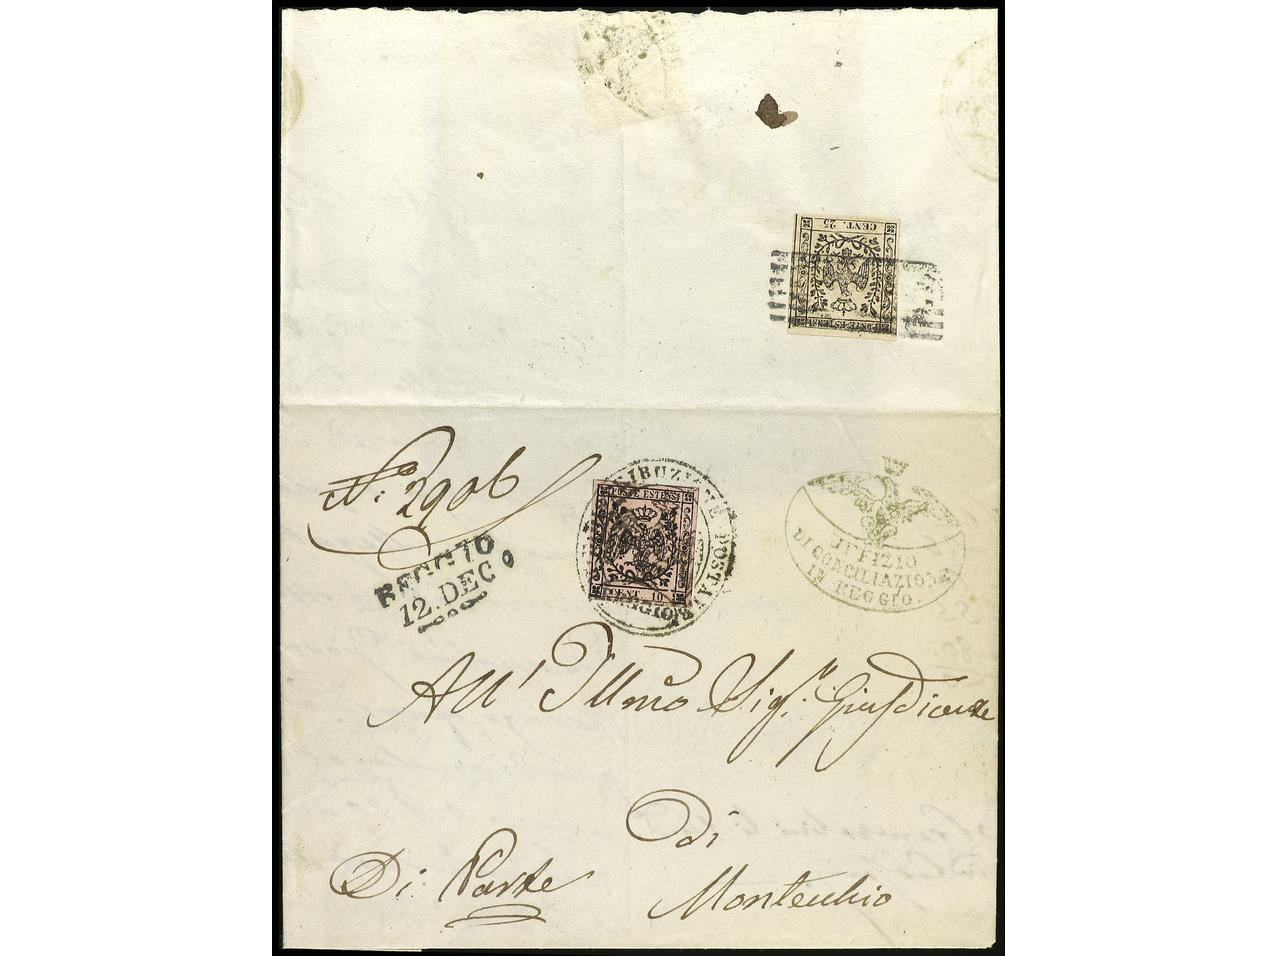 CENT. 25
POSTE ESTENSI
N: 2906
POSTE ESTENSI
CENT 10
REGGIO
12. DEC
UFFIZIO
DI CONCILIAZIONE
IN REGGIO.
All' Illmo Sigr. Giusdicente
di
Di Parte
Montecchio